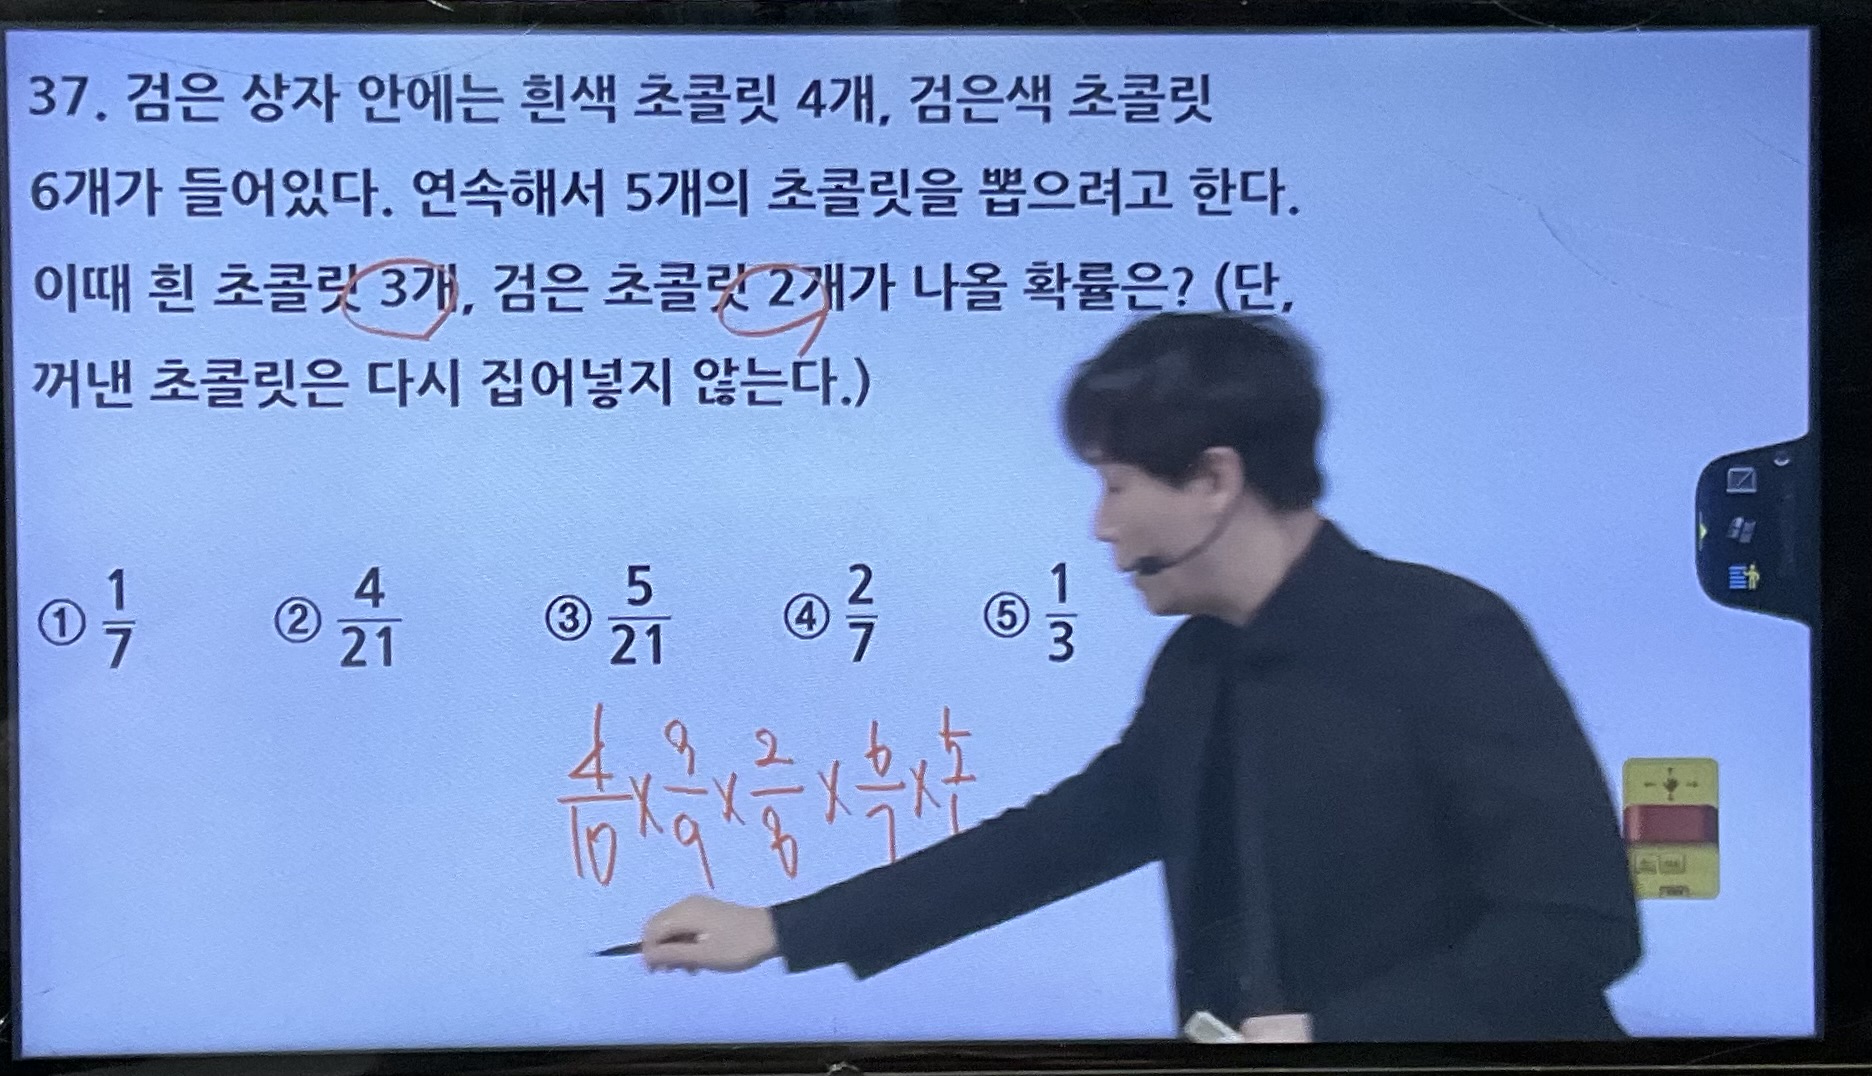 37. 검은 상자 안에는 흰색 초콜릿 4개, 검은색 초콜릿
6개가 들어있다. 연속해서 5개의 초콜릿을 뽑으려고 한다.
이때 흰 초콜릿 3개, 검은 초콜릿 2개가 나올 확률은? (단,
꺼낸 초콜릿은 다시 집어넣지 않는다.)
① 1/7 ② 4/21 ③ 5/21 ④ 2/7 ⑤ 1/3
4/10 × 3/9 × 2/8 × 6/7 × 5/